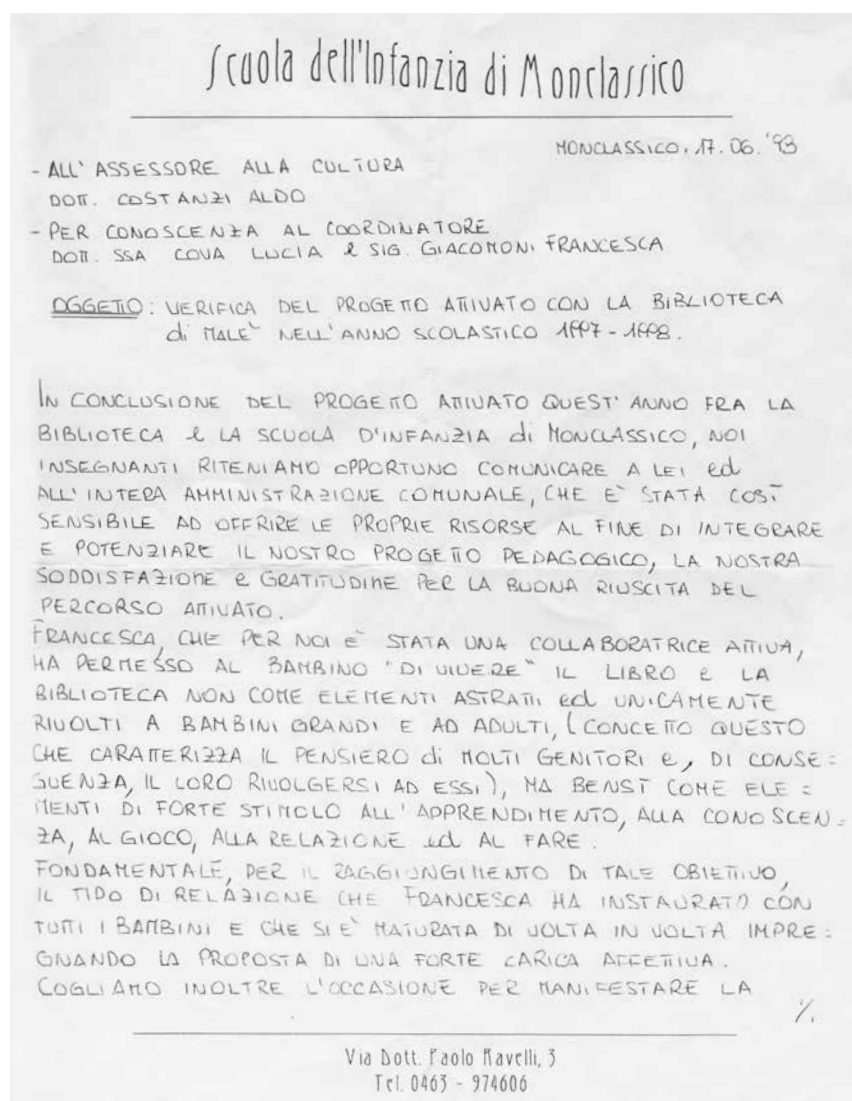 Scuola dell'Infanzia di Monclassico
MONCLASSICO, 17.06.'98
- ALL' ASSESSORE ALLA CULTURA
DOTT. COSTANZI ALDO
- PER CONOSCENZA AL COORDINATORE
DOTT. SSA COVA LUCIA e SIG. GIACOMONI FRANCESCA
OGGETTO: VERIFICA DEL PROGETTO ATTIVATO CON LA BIBLIOTECA
di MALE' NELL'ANNO SCOLASTICO 1997-1998.
IN CONCLUSIONE DEL PROGETTO ATTIVATO QUEST'ANNO FRA LA
BIBLIOTECA e LA SCUOLA D'INFANZIA di MONCLASSICO, NOI
INSEGNANTI RITENIAMO OPPORTUNO COMUNICARE A LEI ed
ALL'INTERA AMMINISTRAZIONE COMUNALE, CHE E' STATA COSÌ
SENSIBILE AD OFFRIRE LE PROPRIE RISORSE AL FINE DI INTEGRARE
E POTENZIARE IL NOSTRO PROGETTO PEDAGOGICO, LA NOSTRA
SODDISFAZIONE e GRATITUDINE PER LA BUONA RIUSCITA DEL
PERCORSO ATTIVATO.
FRANCESCA, CHE PER NOI E' STATA UNA COLLABORATRICE ATTIVA,
HA PERMESSO AL BAMBINO "DI VIVERE" IL LIBRO e LA
BIBLIOTECA NON COME ELEMENTI ASTRATTI ed UNICAMENTE
RIVOLTI A BAMBINI GRANDI E AD ADULTI, (CONCETTO QUESTO
CHE CARATTERIZZA IL PENSIERO di MOLTI GENITORI e, DI CONSE=
GUENZA, IL LORO RIVOLGERSI AD ESSI), MA BENSÌ COME ELE=
MENTI DI FORTE STIMOLO ALL'APPRENDIMENTO, ALLA CONOSCEN=
ZA, AL GIOCO, ALLA RELAZIONE ed AL FARE.
FONDAMENTALE, PER IL RAGGIUNGIMENTO DI TALE OBIETTIVO,
IL TIPO DI RELAZIONE CHE FRANCESCA HA INSTAURATO CON
TUTTI I BAMBINI E CHE SI E' MATURATA DI VOLTA IN VOLTA IMPRE=
GNANDO LA PROPOSTA DI UNA FORTE CARICA AFFETTIVA.
COGLIAMO INOLTRE L'OCCASIONE PER MANIFESTARE LA
%.
Via Dott. Paolo Ravelli, 3
Tel. 0463 - 974606